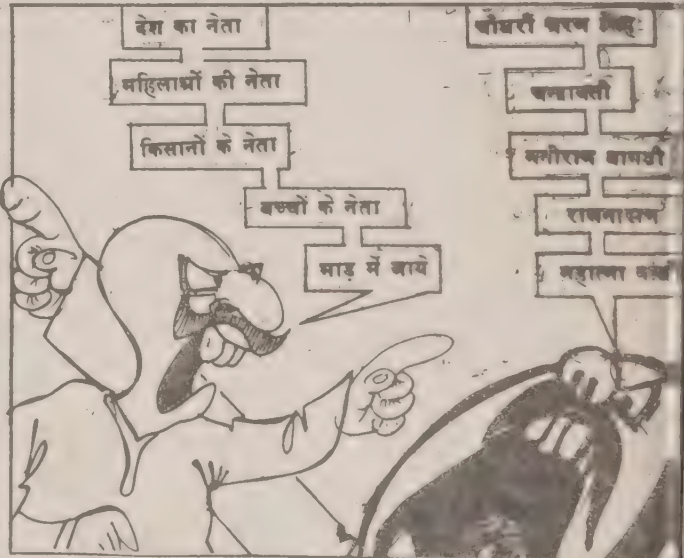 देश का नेता
महिलाओं की नेता
किसानों के नेता
बच्चों के नेता
भाड़ में जाये
चौधरी चरण सिंह
चन्द्रावती
मनीराम बागड़ी
राजनारायण
महात्मा